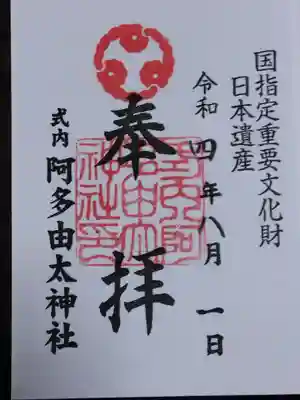 国指定重要文化財
日本遺産
令和四年八月一日
奉拝
式内 阿多由太神社